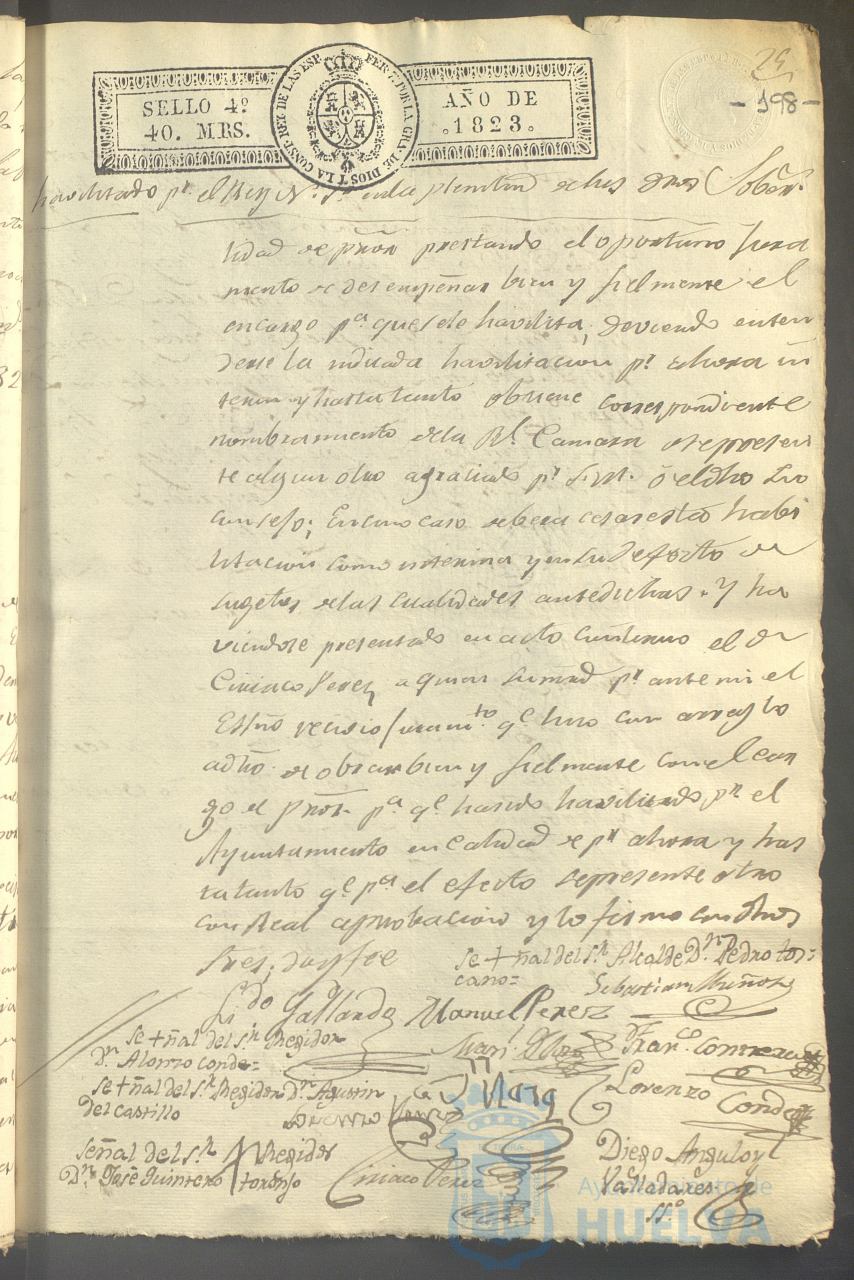 SELLO 4º
40. MRS.
FERN. 7. POR LA GRA. DE DIOS Y LA CONST. REY DE LAS ESP.
AÑO DE
1823.
25
- 198 -
havilitado pr. el Rey N. Sr. en la plenitud de sus dros Sobera
lidad de pror prestando el oportuno jura
mento de desempeñar bien y fielmente el
encargo pa. que se le havilita, deviendo enten
derse la indicada havilitacion pr. ahora in
terin y hasta tanto obtiene correspondiente
nombramiento dela Rl. Camara o se presen
te algun otro agraciado pr. S.M. ó el dho
consejo; En cuyo caso debera cesar esta habi
litacion como interina y en su defecto de
sugetos de las cualidades antedichas. Y ha
viendose presentado en acto continuo el Dn
Ciriaco Perez a quien su mrd pr. ante mi el
Essno recivio juramto. qe. hizo con arreglo
a dro. de obrar bien y fielmente con el car
go de pror. pa. qe. ha sido havilitado pr. el
Ayuntamiento en calidad de pr ahora y has
ta tanto qe. pa. el efecto se presente otro
con Real aprobacion y lo firmo con dhos
Sres, doy fee
se + ñal del sr. Alcalde Dn. Pedro tos=
cano=
Sebastian Muñoz
Ldo Gallardo
Manuel Perez
se + ñal del sr. Regidor
Dn. Alonzo conde=
Franco. Contrera
se + ñal del sr. Regidor Dn. Agustin
Del castillo
Lorenzo
Conde
señal del sr. Regidor
Dn. José Quintero
Ciriaco Perez
Diego Angulo y
Valladares
sso.
Ayuntamiento de
HUELVA